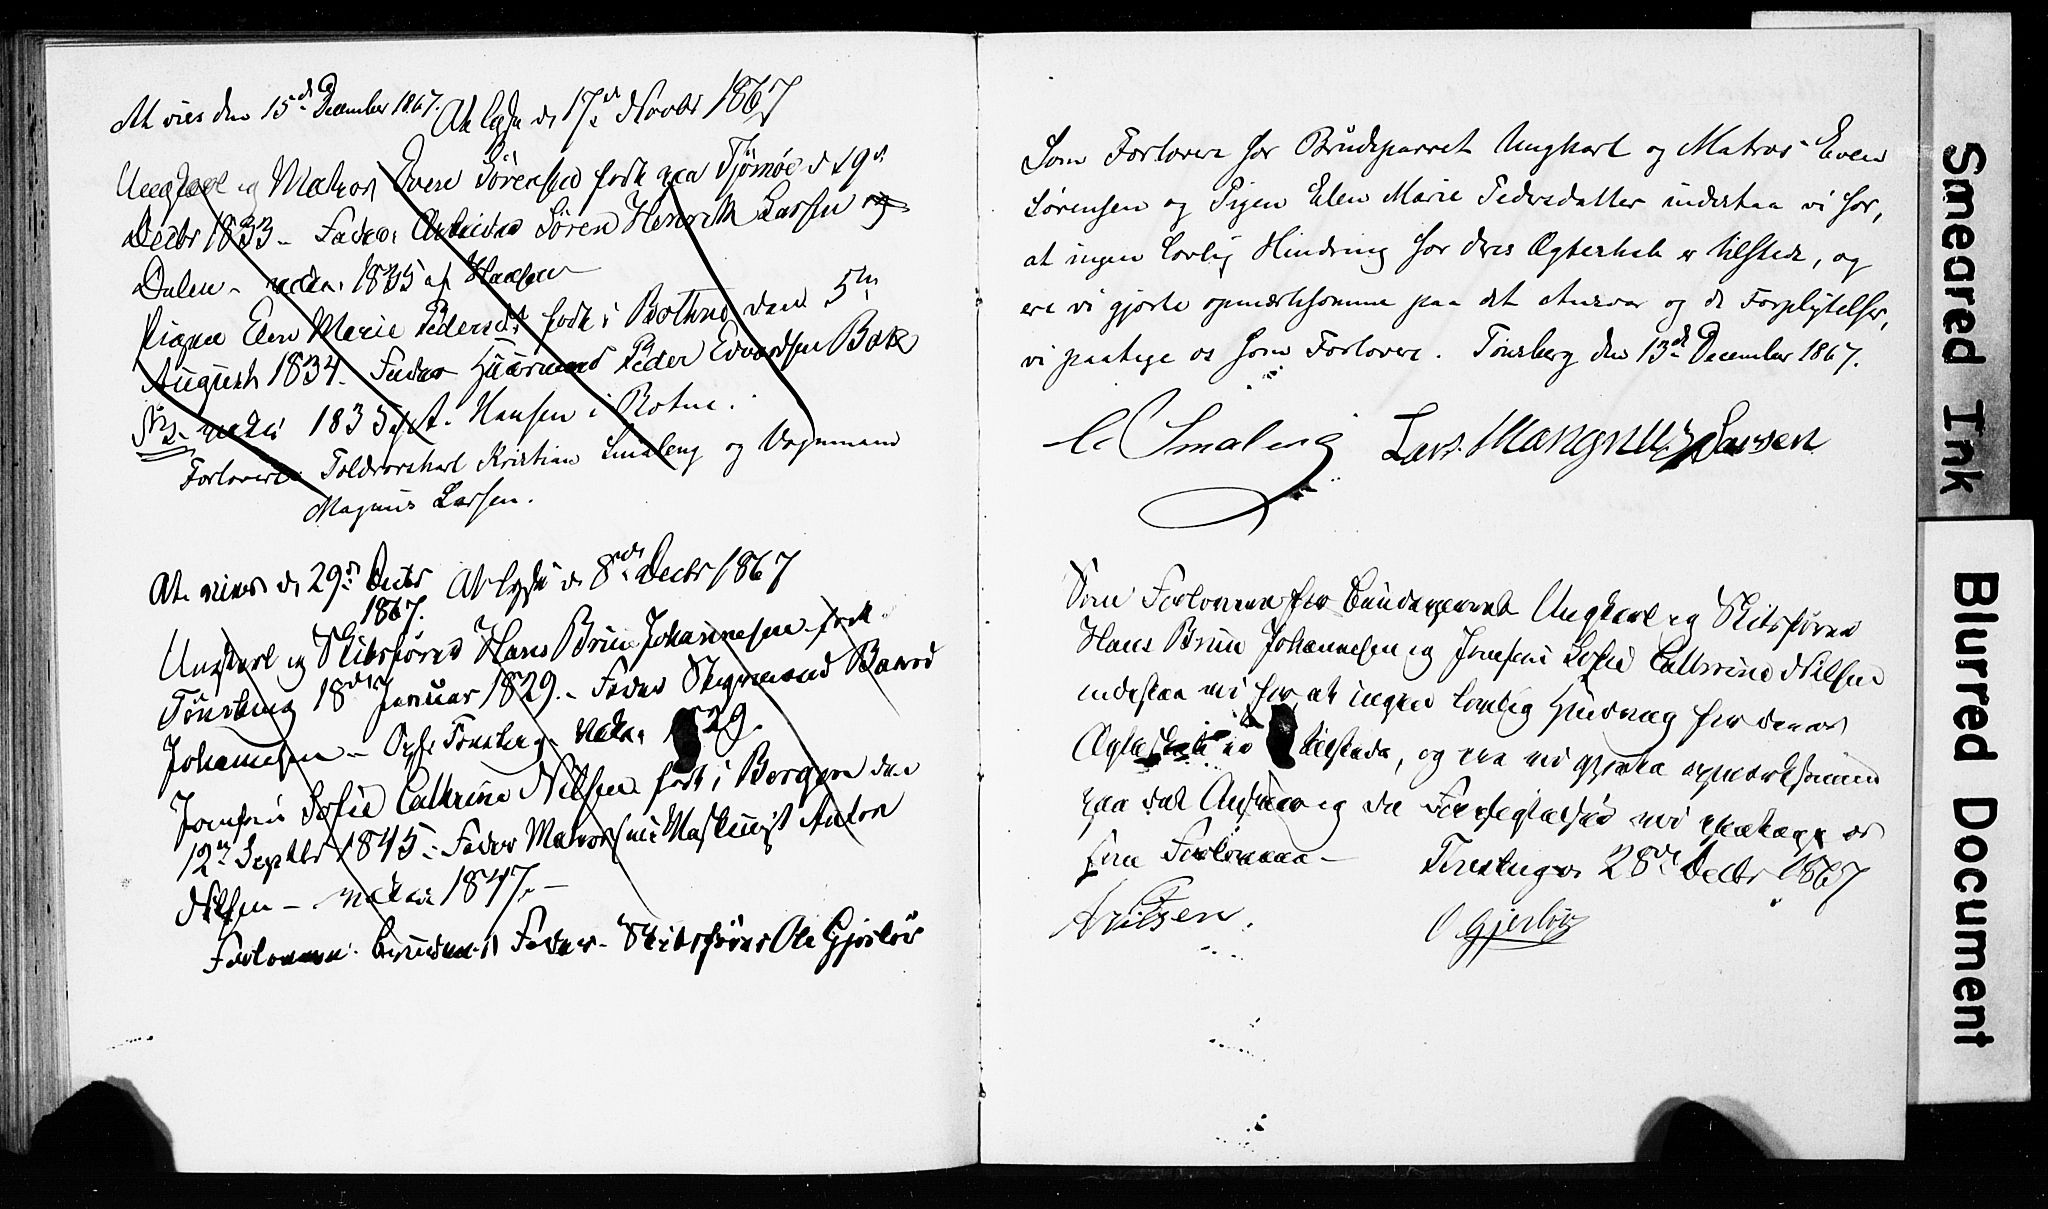 At vies den 15de December 1867. At lyse d. 17de Novbr 1867
Ungkarl og Matros Even Sörensen født paa Tjömöe d 29d.
Decbr 1833 – Fader Arbeider Sören Henrik Larsen
Dalen – vaccin. 1835 af Hansen
Pigen Elen Marie Pedersdt født i Bothne den 5te
August 1834. Fader Huusmand Peder Edvardsen
vaccin 1835 Hansen i Botne.
Forlovere: Toldroerskarl Kristian Smaleng og Vognmand
Magnus Larsen.
At vies d. 29de Decbr At lyse d 8de Decbr 1867
1867.
Ungkarl og Skibsfører Hans Brun Johannesen født
Tönsberg 18de Januar 1829. – Fader Styrmand
Johannesen – Tönsberg 1829.
Jomfru Sofie Cathrine Nilsen født i Bergen den
12te Septbr 1845 – Fader Maskinist Anton
Nilsen – 1847. –
Forlovere: Brudens Fader – Skibsfører Ole Gjerløv
Som Forlovere for Brudeparret Ungkarl og Matros Even
Sørensen og Pigen Elen Marie Pedersdatter indestaa vi for,
at ingen lovlig Hindring for deres Ægteskab er tilstede, og
ere vi gjorte opmærksomme paa det Ansvar og de Forpligtelser,
vi paatage os som Forlovere. Tønsberg den 13de December 1867.
C Smaleng Lars Mangnus Larsen
Som Forlovere for Brudeparret Ungkarl og Skibsfører
Hans Brun Johannesen og Jomfru Sofie Cathrine Nilsen
indestaa vi for, at ingen lovlig Hindring for deres
Ægteskab er tilstede, og ere vi gjorte opmærksomme
paa det Ansvar og de Forpligtelser vi paatage os
som Forlovere – Tønsberg d. 28de Decbr 1867
A Nilsen. O Gjerløv
Smeared Ink
Blurred Document